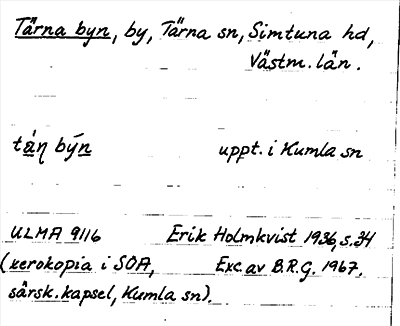 Tärna byn, by, Tärna sn, Simtuna hd,
Västm. län.
tá̱ƞ bý̱n uppt. i Kumla sn
ULMA 9116 Erik Holmkvist 1936, s. 34
(xerokopia i SOA, Exc. av B.R.G. 1967.
särsk. kapsel, Kumla sn).